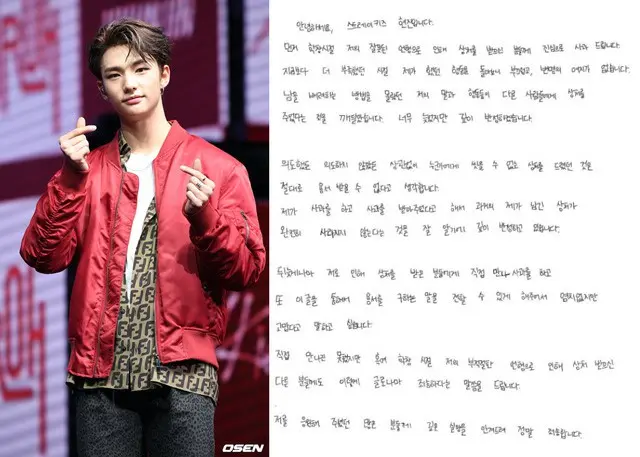 안녕하세요, 스트레이키즈 현진입니다.
먼저 학창시절 저의 잘못된 언행으로 인해 상처를 받으신 분들께 진심으로 사과 드립니다.
지금보다 더 부족했던 시절 제가 했던 행동을 돌아보니 부끄럽고, 변명의 여지가 없습니다.
남을 배려하는 방법을 몰랐던 저의 말과 행동들이 다른 사람들에게 상처를
주었다는 것을 깨달았습니다. 너무 늦었지만 깊이 반성하겠습니다.
의도했든 의도하지 않았든 상관없이 누군가에게 씻을 수 없는 상처를 드렸던 것은
절대로 용서 받을 수 없다고 생각합니다.
제가 사과를 하고 사과를 받아주었다고 해서 과거의 제가 남긴 상처가
완전히 사라지지 않는다는 것을 잘 알기에 깊이 반성하고 있습니다.
뒤늦게나마 저로 인해 상처를 받은 분들에게 직접 만나 사과를 하고
또 이 글을 통해서 용서를 구하는 말을 전할 수 있게 해주어서 염치없지만
고맙다고 말하고 싶습니다.
직접 만나진 못했지만 혹여 학창 시절 저의 부적절한 언행으로 인해 상처 받으신
다른 분들께도 이렇게 글로나마 죄송하다는 말씀을 드립니다.
저를 응원해 주셨던 많은 분들께 깊은 실망을 안겨드려 정말 죄송합니다.
OSEN